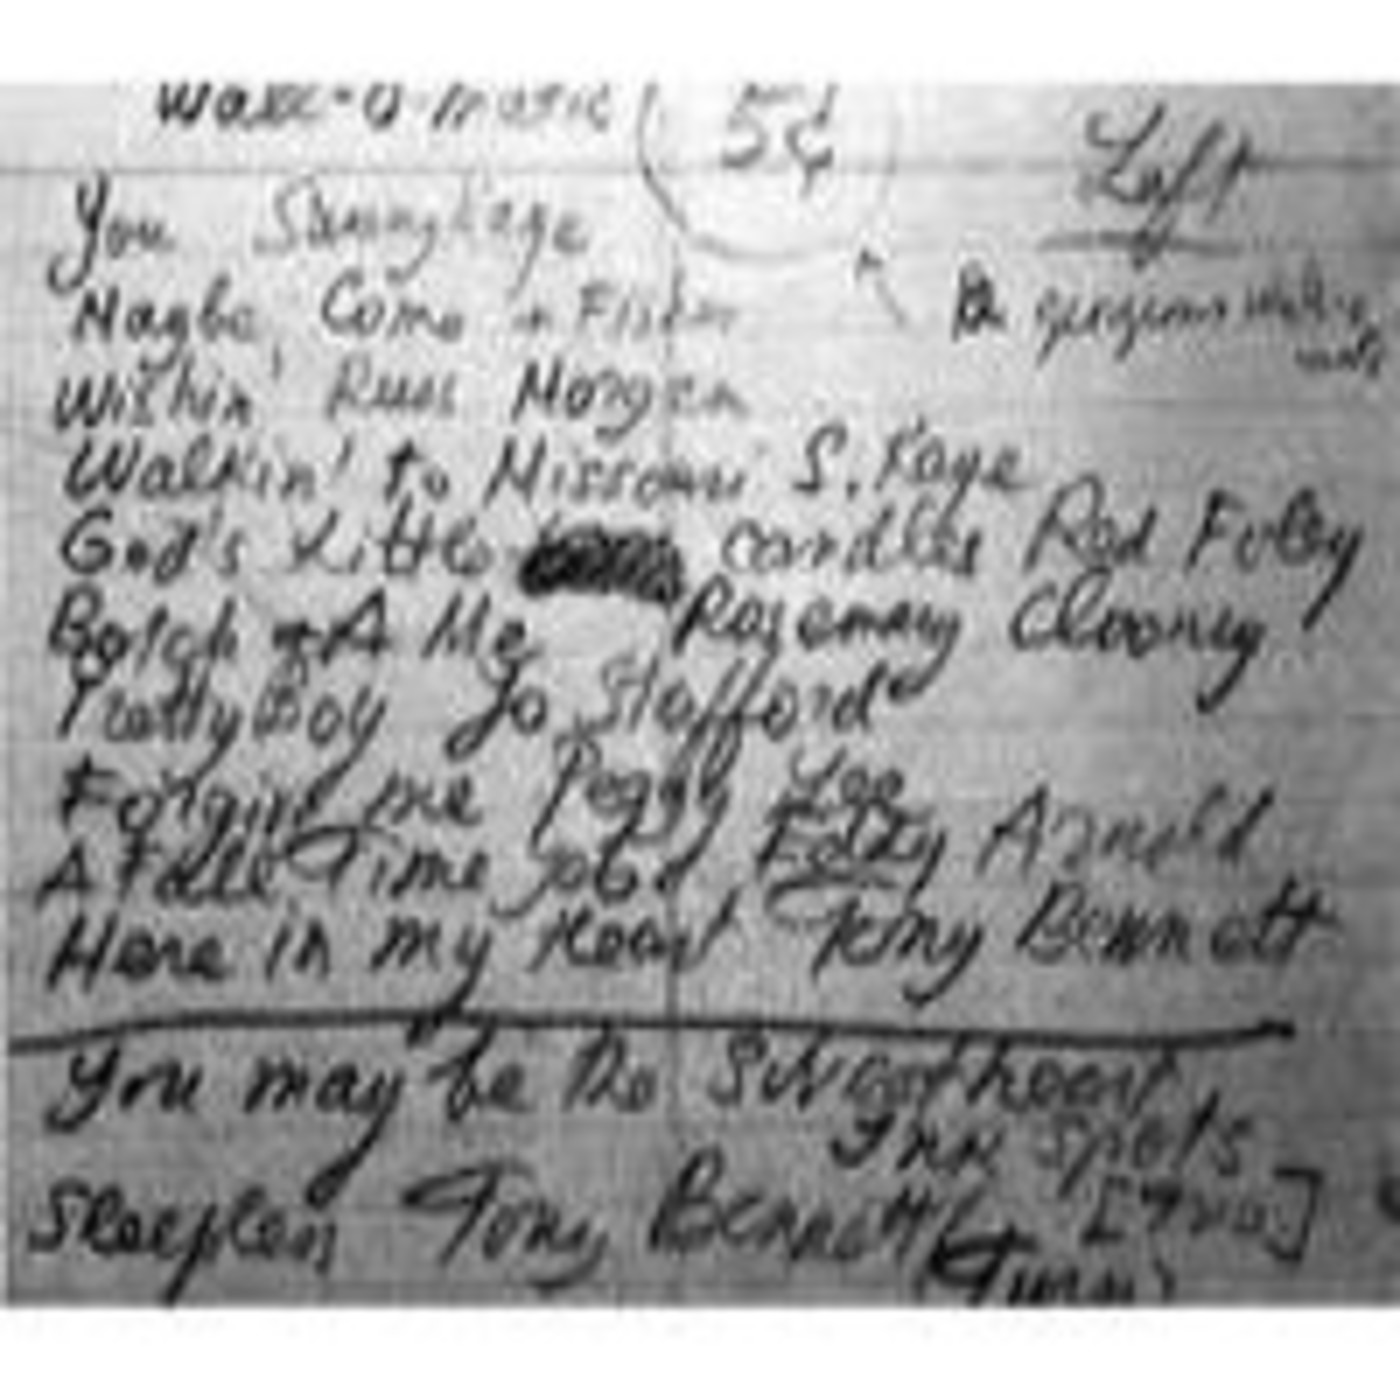 5¢
Left
You Sammy Kaye
Maybe Como + Fisher
Wishin' Russ Morgan
Walkin' to Missouri S. Kaye
God's Little candles Red Foley
Botch A Me Rosemary Clooney
Pretty Boy Jo Stafford
Forgive me Peggy Lee
A Full Time Job Eddy Arnold
Here in my Heart Tony Bennett
You may be the Sweetheart,
Ink Spots
Sleepless Tony Bennett